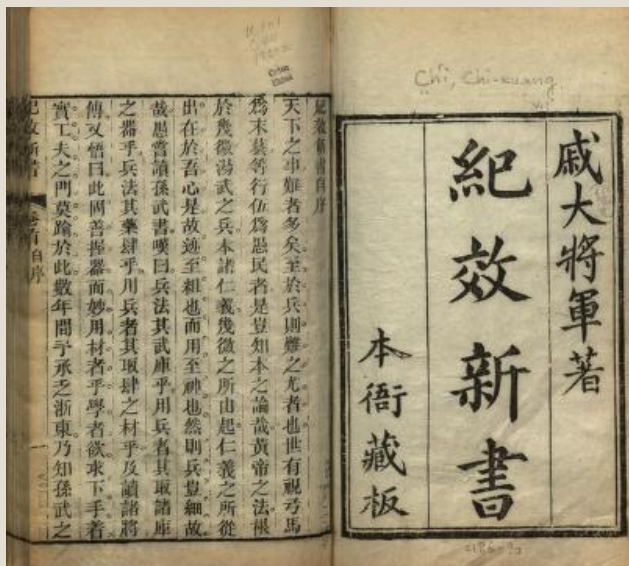 戚大將軍著
紀效新書
本衙藏板
Ch'i, Chi-kuang
紀效新書自序
天下之事難者多矣至於兵則難之尤者也世有視弓馬
爲末藝等行伍爲愚民者是豈知本之論哉黃帝之法根
於幾微湯武之兵本諸仁義幾微之所由起仁義之所從
出在於吾心是故迹至粗也而用至神也然則兵豈細故
哉愚嘗讀孫武書嘆曰兵法其武庫乎用兵者其取諸庫
之器乎兵法其藥肆乎用兵者其取肆之材乎及讀諸將
傳又悟曰此固善握器而妙用材者乎學者欲求下手着
實工夫之門莫踰於此數年間予承乏浙東乃知孫武之
紀效新書
卷首自序
一